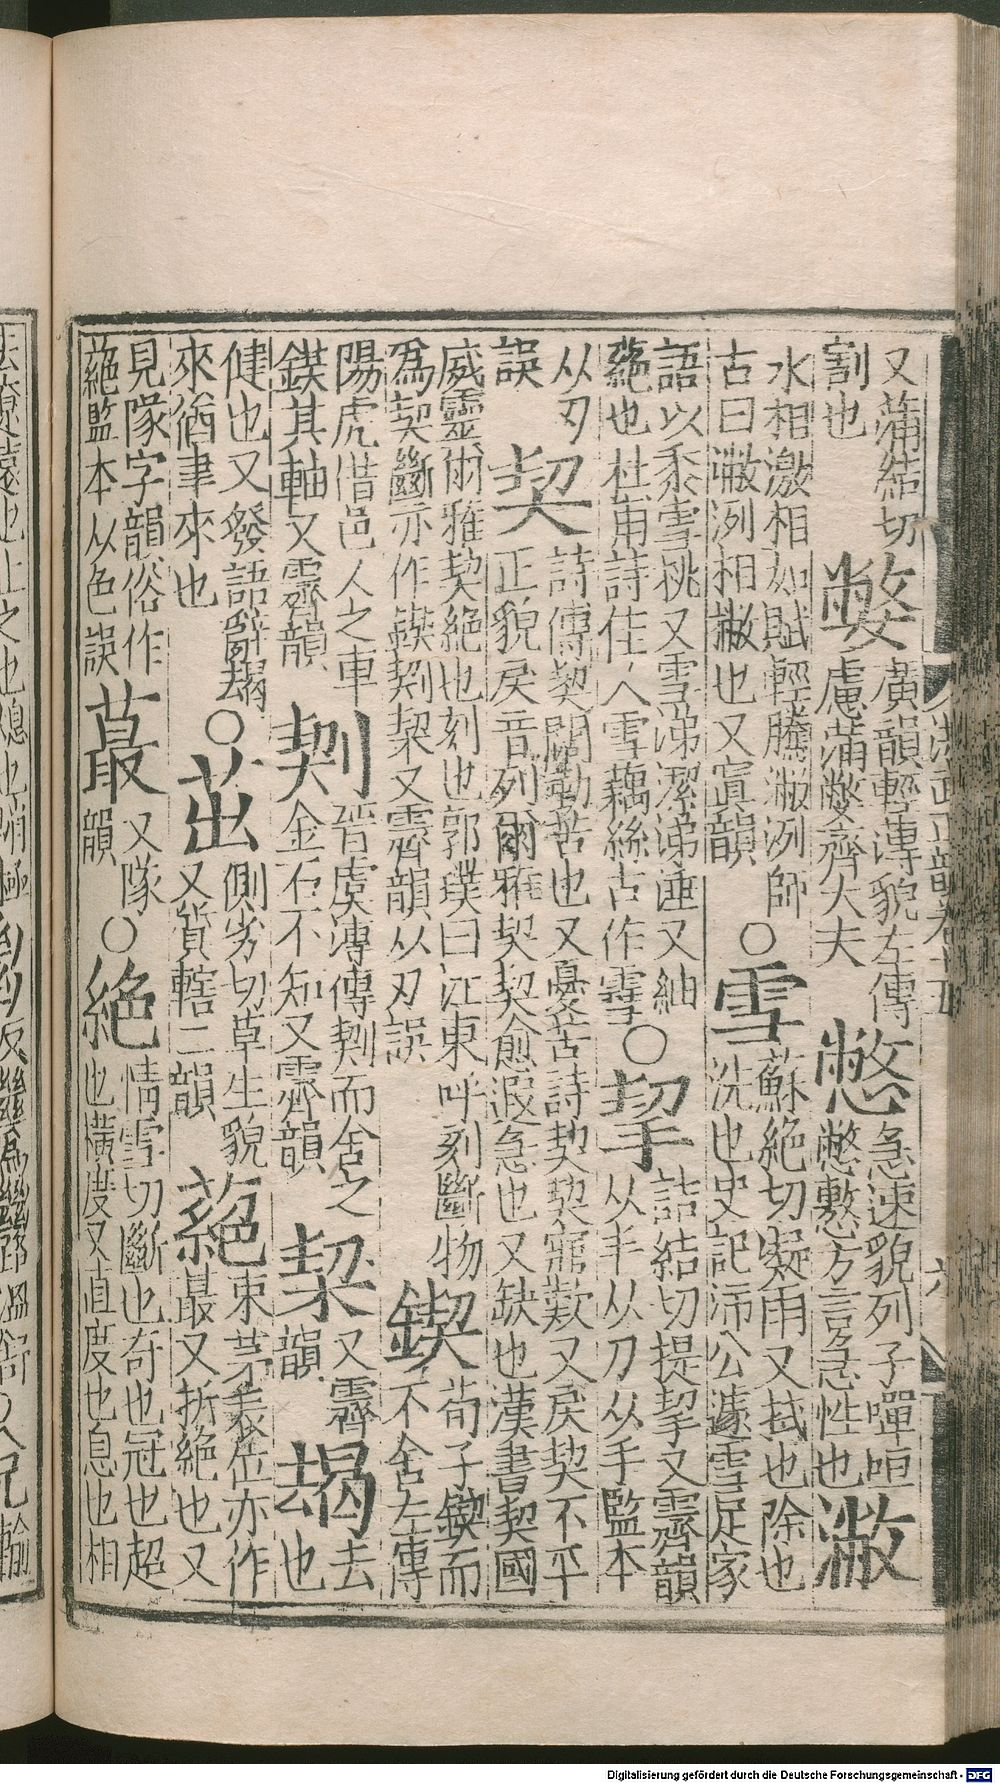 又蒲結切
割也
嫳
廣韻輕薄貌左傳
慮蒲嫳齊大夫
憋
急速貌列子嘽咺
憋憨方言急性也
潎
水相激相如賦輕騰潎洌師
古曰潎洌相撇也又寘韻
○雪
蘇絕切凝雨又拭也除也
洗也史記沛公遽雪足家
語以黍雪桃又雪涕潔涕洟又紬
絕也杜甫詩佳人雪藕絲古作䨮
○挈
詰結切提挈又霽韻
从手从刀从手監本
从刃
誤
契
詩傳契闊勤苦也又憂苦詩契契寤歎又戾契不平
正貌戾音列爾雅契契愈遐急也又缺也漢書契國
威靈爾雅契絕也刻也郭璞曰江東呼刻斷物
爲契斷亦作鍥㓶栔又霽韻从刃誤
鍥
荀子鍥而
不舍左傳
陽虎借邑人之車
鍥其軸又霽韻
㓶
晉虞溥傳㓶而舍之
金石不知又霽韻
栔
又霽
韻
朅
去
也
健也又發語辭朅
來猶聿來也
○茁
側劣切草生貌
又質轄二韻
蕝
束茅表位亦作
蕞又折絕也又
見隊字韻俗作
蕝監本从色誤
蕞
又隊
韻
○絕
情雪切斷也奇也冠也超
也橫度又直度也息也相
洪武正韻卷十五
六
Digitalisierung gefördert durch die Deutsche Forschungsgemeinschaft - DFG